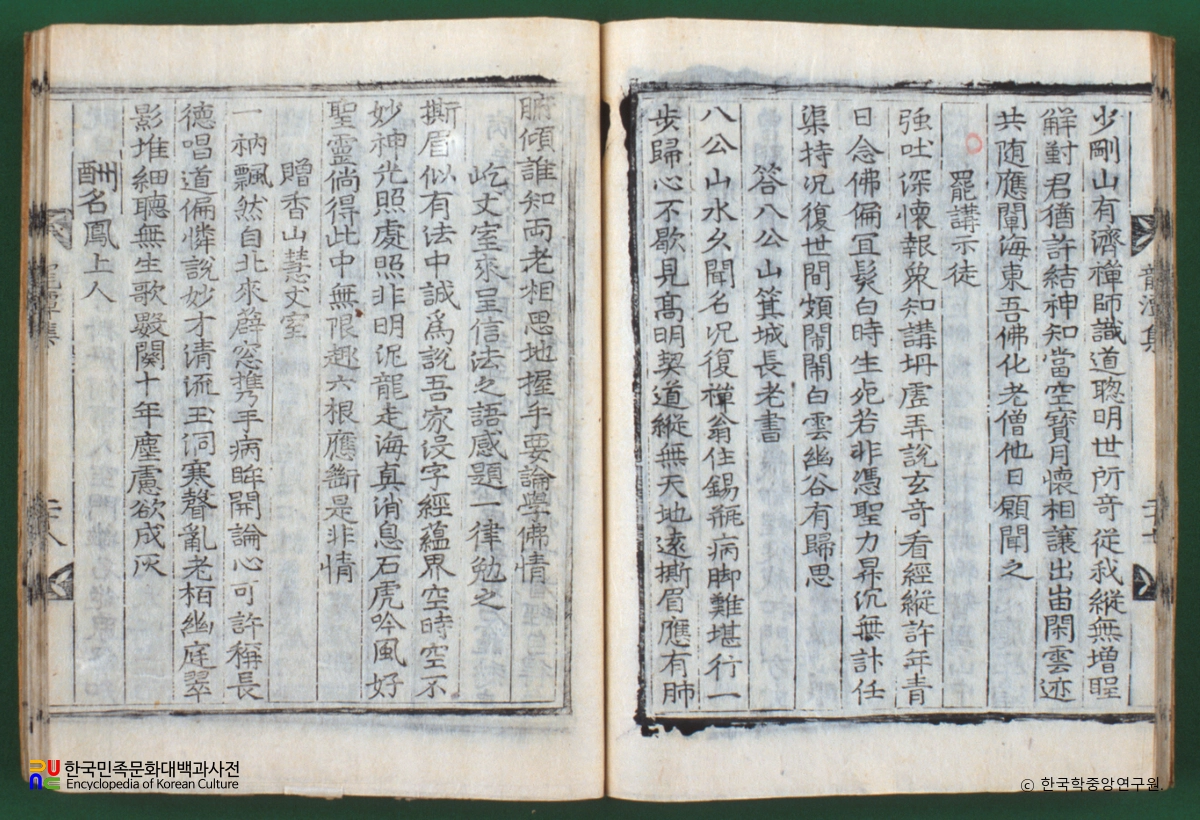 少剛山有濟禪師識道聰明世所奇從我縱無增睲
解對君猶許結神知當空寶月懷相讓出峀閑雲迹
共随應闡海東吾佛化老僧他日願聞之
罷講示徒
強吐深懷報衆知講坍虛弄說玄奇看經縱許年青
日念佛偏宜髮白時生死若非憑聖力昇沉無計任
渠持况復世間頗閙閙白雲幽谷有歸思
答八公山箕城長老書
八公山水久聞名况復禪翁住錫瓶病脚難堪行一
步歸心不歇見高明契道縱無天地遠撕眉應有肺
腑傾誰知両老相思地握手要論學佛情
屹丈室來呈信法之語感題一律勉之
撕眉似有法中誠爲說吾家没字經蘊界空時空不
妙神光照處照非明泥龍走海真消息石虎吟風好
聖靈倘得此中無限趣六根應斷是非情
贈香山慧丈室
一衲飄然自北來辟窓携手病眸開論心可許稱長
德唱道偏憐說妙才清流玉洞寒聲亂老栢幽庭翠
影堆細聽無生歌數闋十年塵慮欲成灰
酬名鳳上人
龍潭集
二十七
龍潭集
二十八
한국민족문화대백과사전
Encyclopedia of Korean Culture
© 한국학중앙연구원